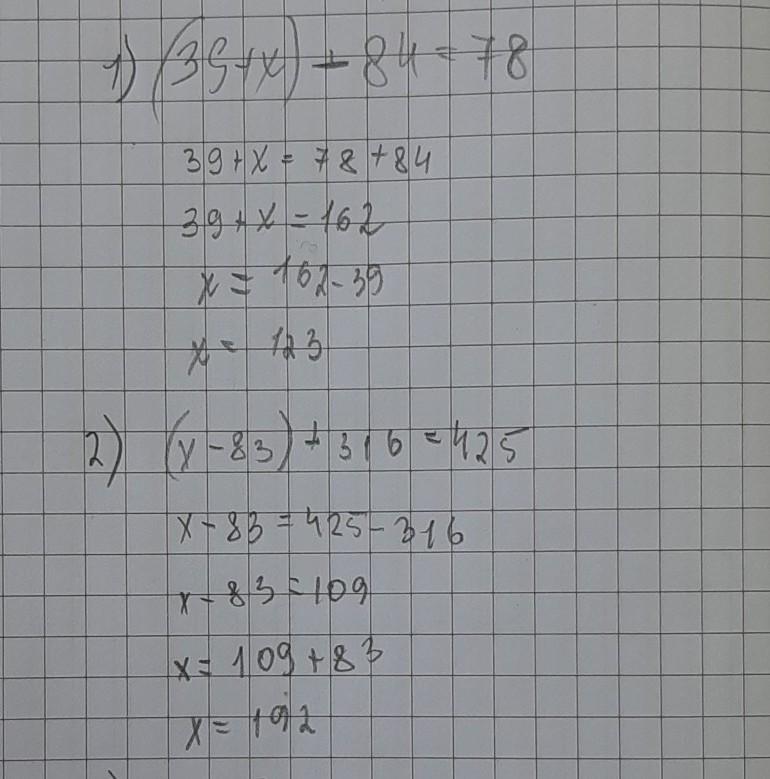 1) (39+x) - 84 = 78
39+x = 78+84
39+x = 162
x = 162-39
x = 123
2) (x-83)+316 = 425
x-83 = 425-316
x-83 = 109
x = 109+83
x = 192